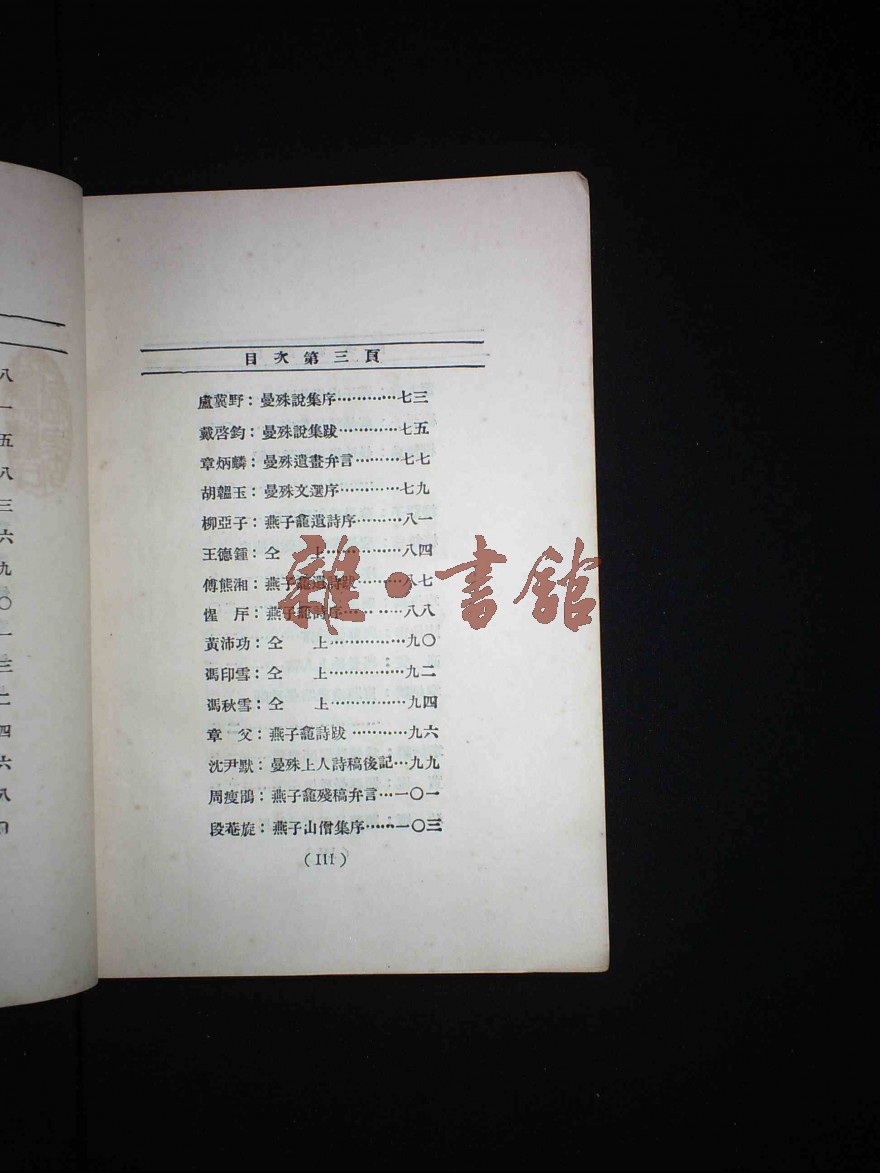 目次第三頁
盧冀野：曼殊說集序…………七三
戴啓鈞：曼殊說集跋…………七五
章炳麟：曼殊遺畫弁言………七七
胡韞玉：曼殊文選序…………七九
柳亞子：燕子龕遺詩序………八一
王德鍾：仝　上……………八四
傅熊湘：燕子龕遺詩跋………八七
惺　厈：燕子龕詩序…………八八
黃沛功：仝　上……………九〇
馮印雪：仝　上……………九二
馮秋雪：仝　上……………九四
章　父：燕子龕詩跋…………九六
沈尹默：曼殊上人詩稿後記…九九
周瘦鵑：燕子龕殘稿弁言…一〇一
段菴旋：燕子山僧集序……一〇三
（III）
雜·書館
八
一
五
八
三
六
九
〇
一
三
二
四
六
八